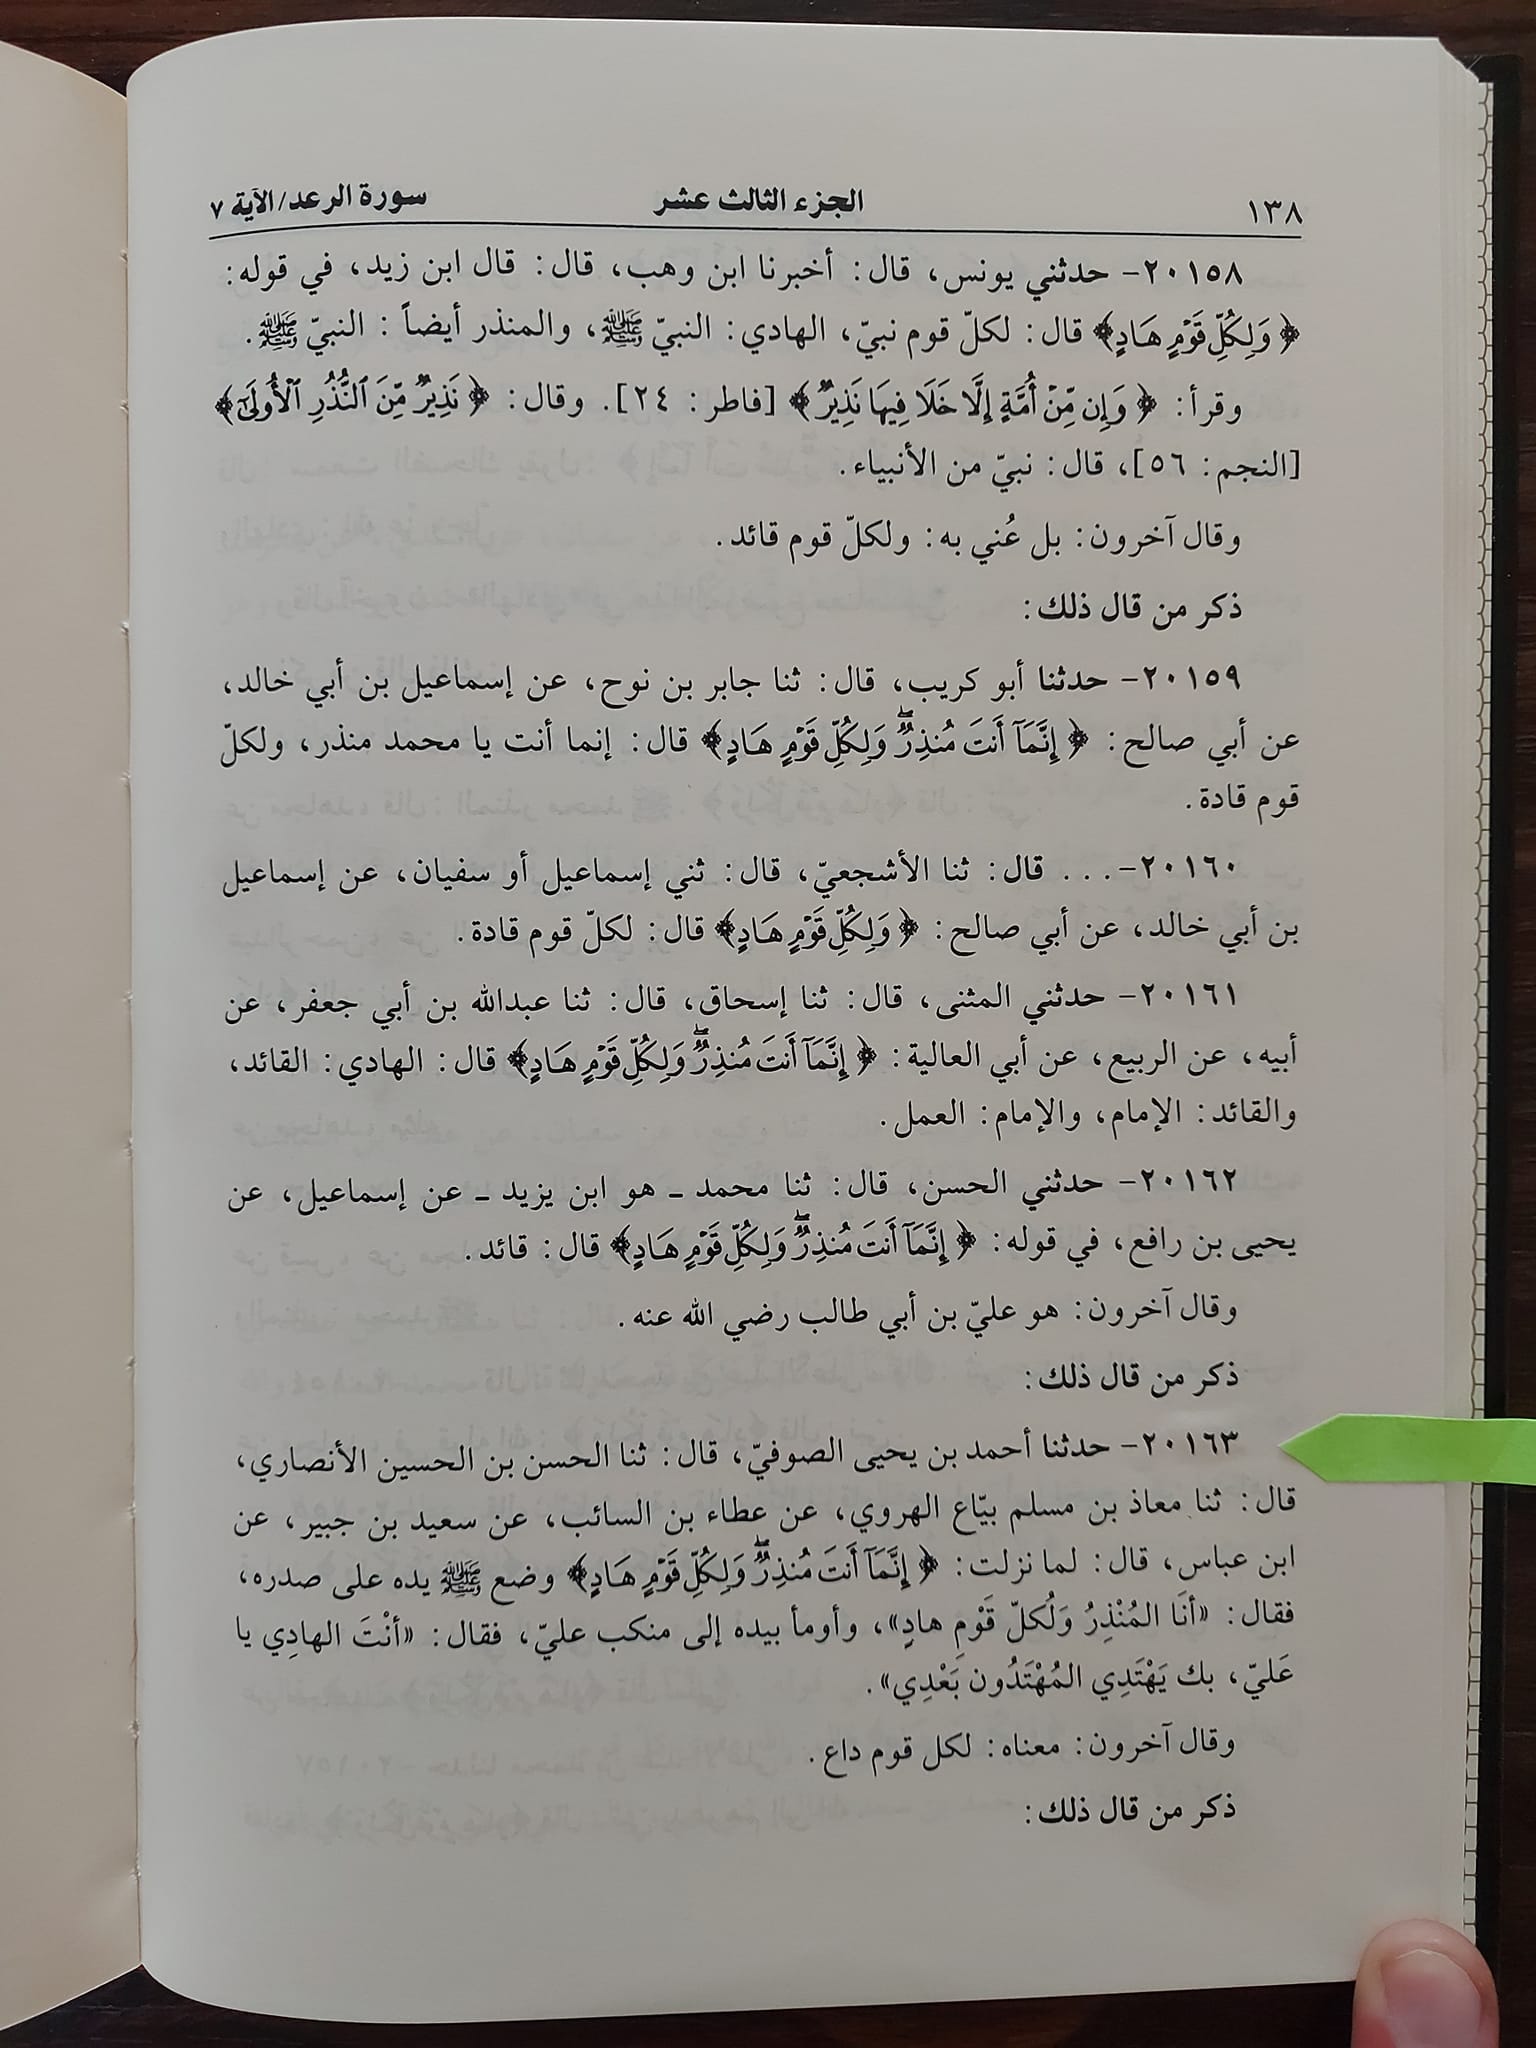 ١٣٨ الجزء الثالث عشر سورة الرعد/الآية ٧
٢٠١٥٨- حدثني يونس، قال: أخبرنا ابن وهب، قال: قال ابن زيد، في قوله:
﴿وَلِكُلِّ قَوْمٍ هَادٍ﴾ قال: لكلّ قوم نبيّ، الهادي: النبيّ ﷺ، والمنذر أيضاً: النبيّ ﷺ.
وقرأ: ﴿وَإِن مِّنْ أُمَّةٍ إِلَّا خَلَا فِيهَا نَذِيرٌ﴾ [فاطر: ٢٤]. وقال: ﴿نَذِيرٌ مِّنَ ٱلنُّذُرِ ٱلْأُولَىٰٓ﴾
[النجم: ٥٦]، قال: نبيّ من الأنبياء.
وقال آخرون: بل عُني به: ولكلّ قوم قائد.
ذكر من قال ذلك:
٢٠١٥٩- حدثنا أبو كريب، قال: ثنا جابر بن نوح، عن إسماعيل بن أبي خالد،
عن أبي صالح: ﴿إِنَّمَآ أَنتَ مُنذِرٌ ۖ وَلِكُلِّ قَوْمٍ هَادٍ﴾ قال: إنما أنت يا محمد منذر، ولكلّ
قوم قادة.
٢٠١٦٠-... قال: ثنا الأشجعيّ، قال: ثني إسماعيل أو سفيان، عن إسماعيل
بن أبي خالد، عن أبي صالح: ﴿وَلِكُلِّ قَوْمٍ هَادٍ﴾ قال: لكلّ قوم قادة.
٢٠١٦١- حدثني المثنى، قال: ثنا إسحاق، قال: ثنا عبدالله بن أبي جعفر، عن
أبيه، عن الربيع، عن أبي العالية: ﴿إِنَّمَآ أَنتَ مُنذِرٌ ۖ وَلِكُلِّ قَوْمٍ هَادٍ﴾ قال: الهادي: القائد،
والقائد: الإمام، والإمام: العمل.
٢٠١٦٢- حدثني الحسن، قال: ثنا محمد ـ هو ابن يزيد ـ عن إسماعيل، عن
يحيى بن رافع، في قوله: ﴿إِنَّمَآ أَنتَ مُنذِرٌ ۖ وَلِكُلِّ قَوْمٍ هَادٍ﴾ قال: قائد.
وقال آخرون: هو عليّ بن أبي طالب رضي الله عنه.
ذكر من قال ذلك:
٢٠١٦٣- حدثنا أحمد بن يحيى الصوفيّ، قال: ثنا الحسن بن الحسين الأنصاري،
قال: ثنا معاذ بن مسلم بيّاع الهروي، عن عطاء بن السائب، عن سعيد بن جبير، عن
ابن عباس، قال: لما نزلت: ﴿إِنَّمَآ أَنتَ مُنذِرٌ ۖ وَلِكُلِّ قَوْمٍ هَادٍ﴾ وضع ﷺ يده على صدره،
فقال: «أنَا المُنْذِرُ وَلُكلّ قَوْمِ هادٍ»، وأومأ بيده إلى منكب عليّ، فقال: «أنْتَ الهادِي يا
عَليّ، بك يَهْتَدِي المُهْتَدُون بَعْدِي».
وقال آخرون: معناه: لكل قوم داع.
ذكر من قال ذلك: